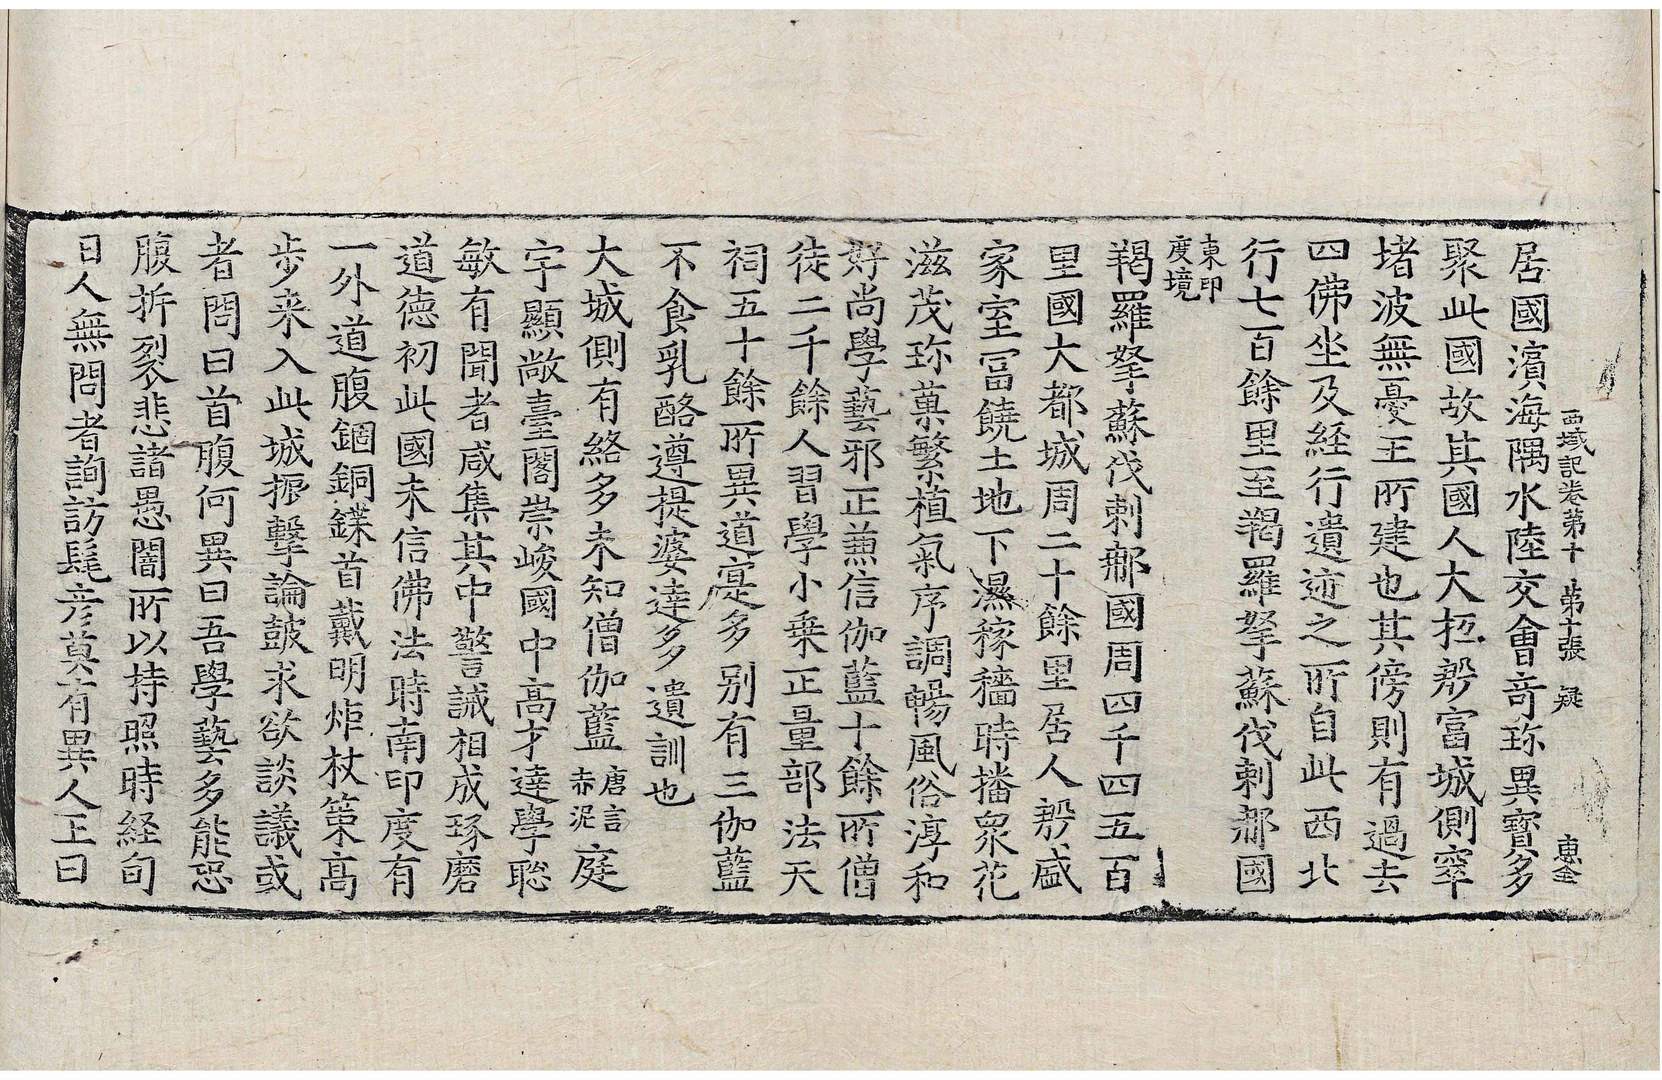 西域記卷第十　第十張　疑　惠全
居國濱海隅水陸交會竒珎異寶多
聚此國故其國人大抵殷富城側窣
堵波無憂王所建也其傍則有過去
四佛坐及経行遺迹之所自此西北
行七百餘里至羯羅拏蘇伐剌那國
東印
度境
羯羅拏蘇伐剌那國周四千四五百
里國大都城周二十餘里居人殷盛
家室冨饒土地下濕稼穡時播衆花
滋茂珎菓繁植氣序調暢風俗淳和
好尚學藝邪正兼信伽藍十餘所僧
徒二千餘人習學小乗正量部法天
祠五十餘所異道寔多別有三伽藍
不食乳酪遵提婆達多遺訓也
大城側有絡多未知僧伽藍唐言赤泥庭
宇顯敞臺閣崇峻國中高才達學聡
敏有聞者咸集其中警誡相成琢磨
道德初此國未信佛法時南印度有
一外道腹錮銅鍱首戴明炬杖策高
步来入此城振擊論鼓求欲談議或
者問曰首腹何異曰吾學藝多能恐
腹拆裂悲諸愚闇所以持照時経旬
日人無問者詢訪髦彦莫有異人王曰